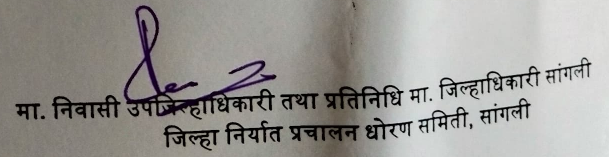 मा. निवासी उपजिल्हाधिकारी तथा प्रतिनिधि मा. जिल्हाधिकारी सांगली
जिल्हा निर्यात प्रचालन धोरण समिती, सांगली